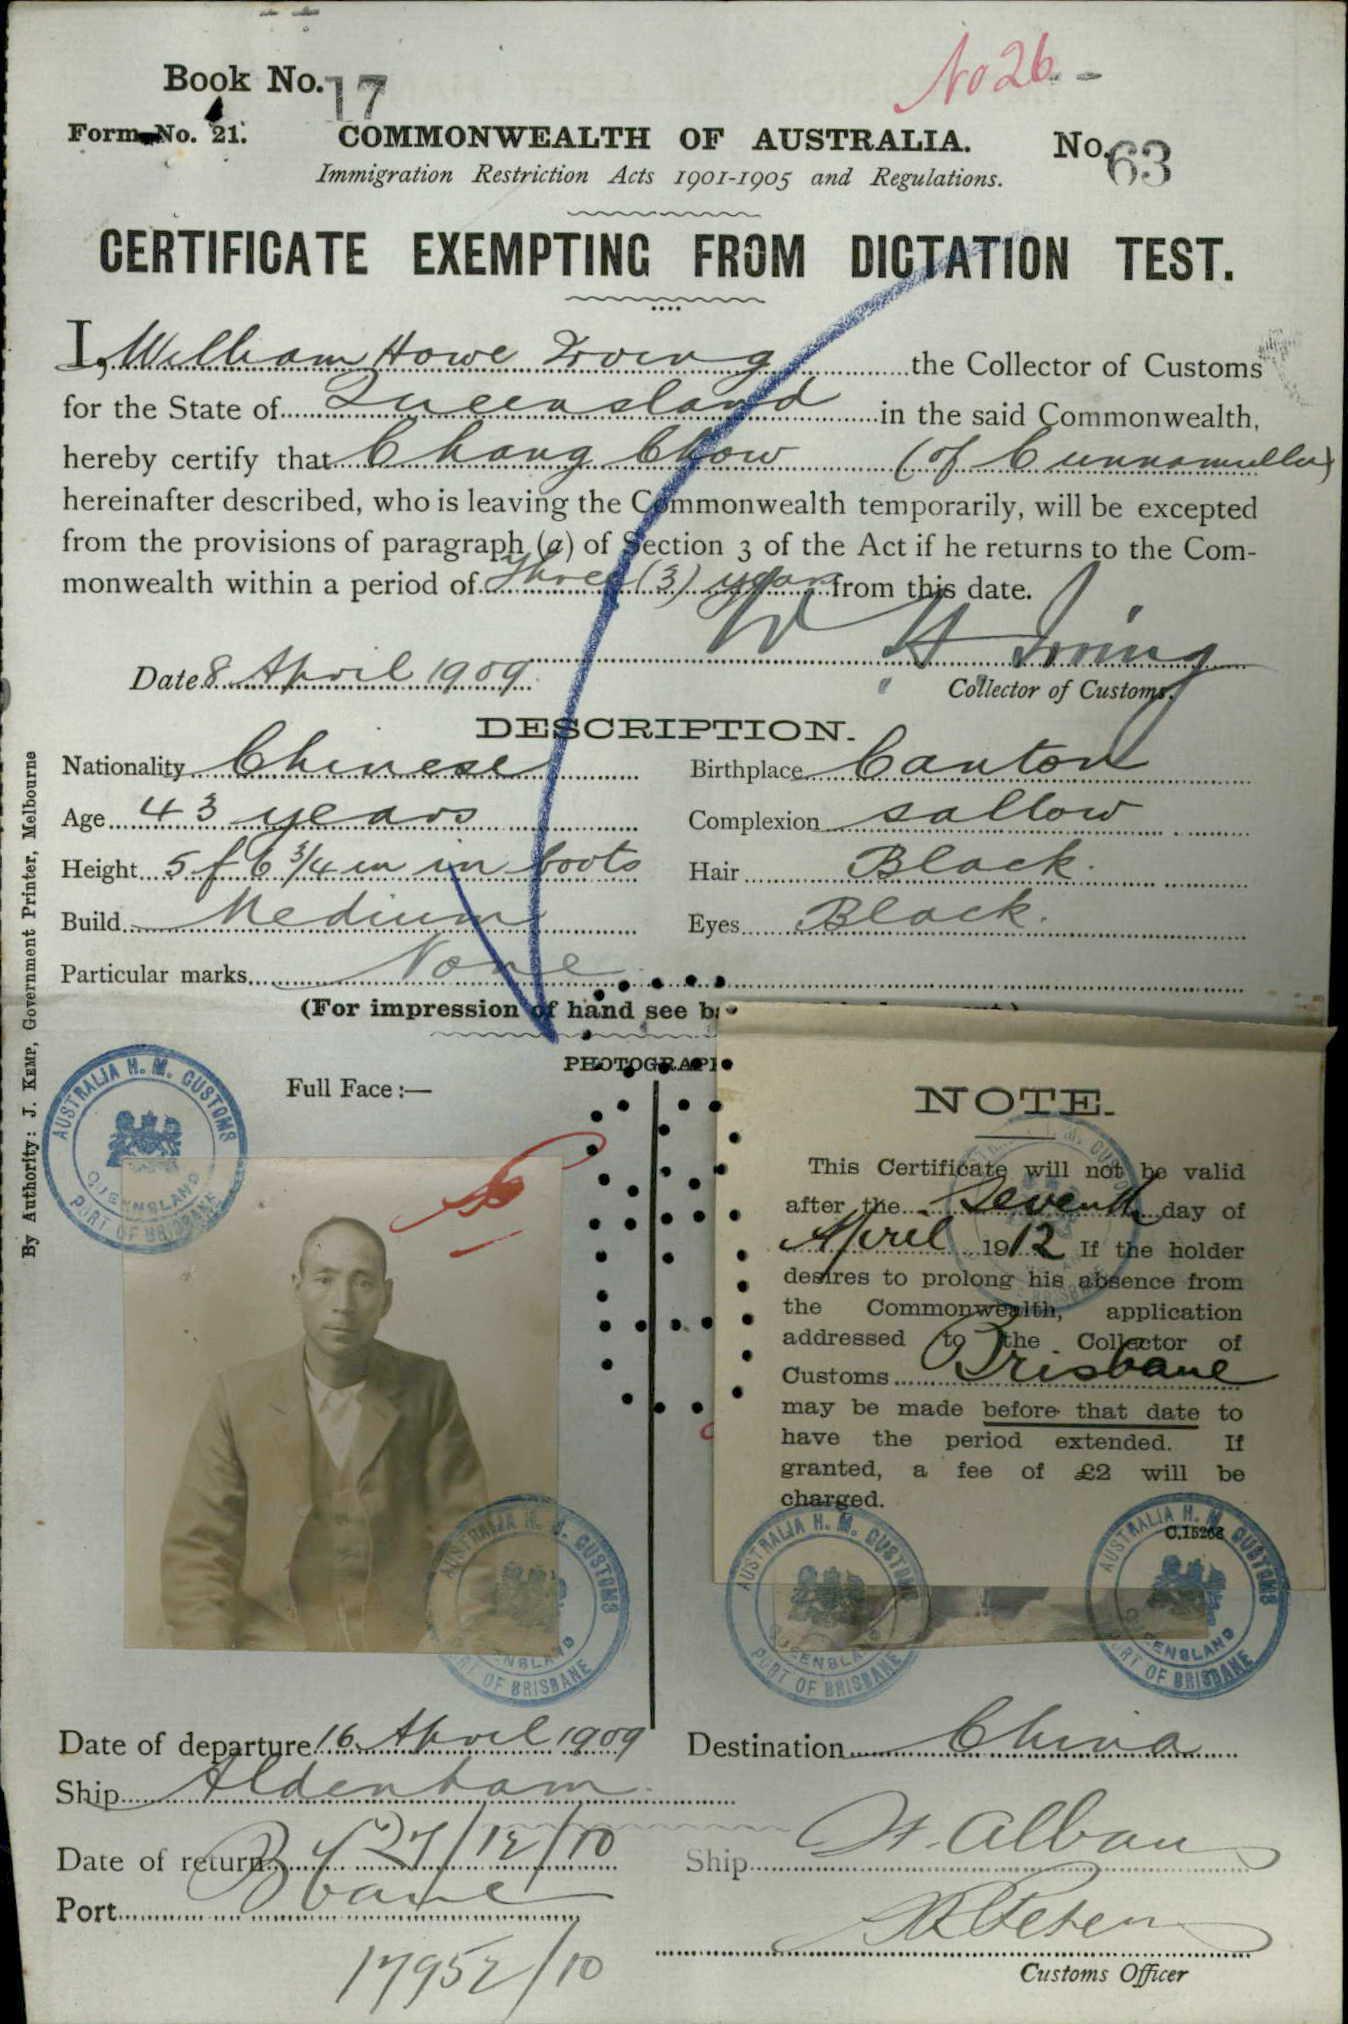 No 26
Book No. 17
Form No. 21.
COMMONWEALTH OF AUSTRALIA.
No. 63
Immigration Restriction Acts 1901-1905 and Regulations.
CERTIFICATE EXEMPTING FROM DICTATION TEST.
I, William Howe Irving the Collector of Customs
for the State of Queensland in the said Commonwealth,
hereby certify that Chang Chow (of Cunnamulla)
hereinafter described, who is leaving the Commonwealth temporarily, will be excepted
from the provisions of paragraph (a) of Section 3 of the Act if he returns to the Com-
monwealth within a period of three (3) years from this date.
W H Irving
Date 8 April 1909
Collector of Customs.
DESCRIPTION.
Nationality Chinese Birthplace Canton
Age 43 years Complexion sallow
Height 5 f 6 3/4 in in boots Hair Black.
Build Medium Eyes Black.
Particular marks None
(For impression of hand see b
PHOTOGRAPH
Full Face :—
By Authority: J. KEMP, Government Printer, Melbourne
AUSTRALIA H. M. CUSTOMS
QUEENSLAND
PORT OF BRISBANE
NOTE.
This Certificate will not be valid
after the seventh day of
April 1912 If the holder
desires to prolong his absence from
the Commonwealth, application
addressed to the Collector of
Customs Brisbane
may be made before that date to
have the period extended. If
granted, a fee of £2 will be
charged.
C.15268
AUSTRALIA H. M. CUSTOMS
QUEENSLAND
PORT OF BRISBANE
AUSTRALIA H. M. CUSTOMS
QUEENSLAND
PORT OF BRISBANE
AUSTRALIA H. M. CUSTOMS
QUEENSLAND
PORT OF BRISBANE
Date of departure 16 April 1909 Destination China
Ship Aldenham
Date of return 27/12/10 Ship St. Albans
Port Bbane
Customs Officer
17952/10